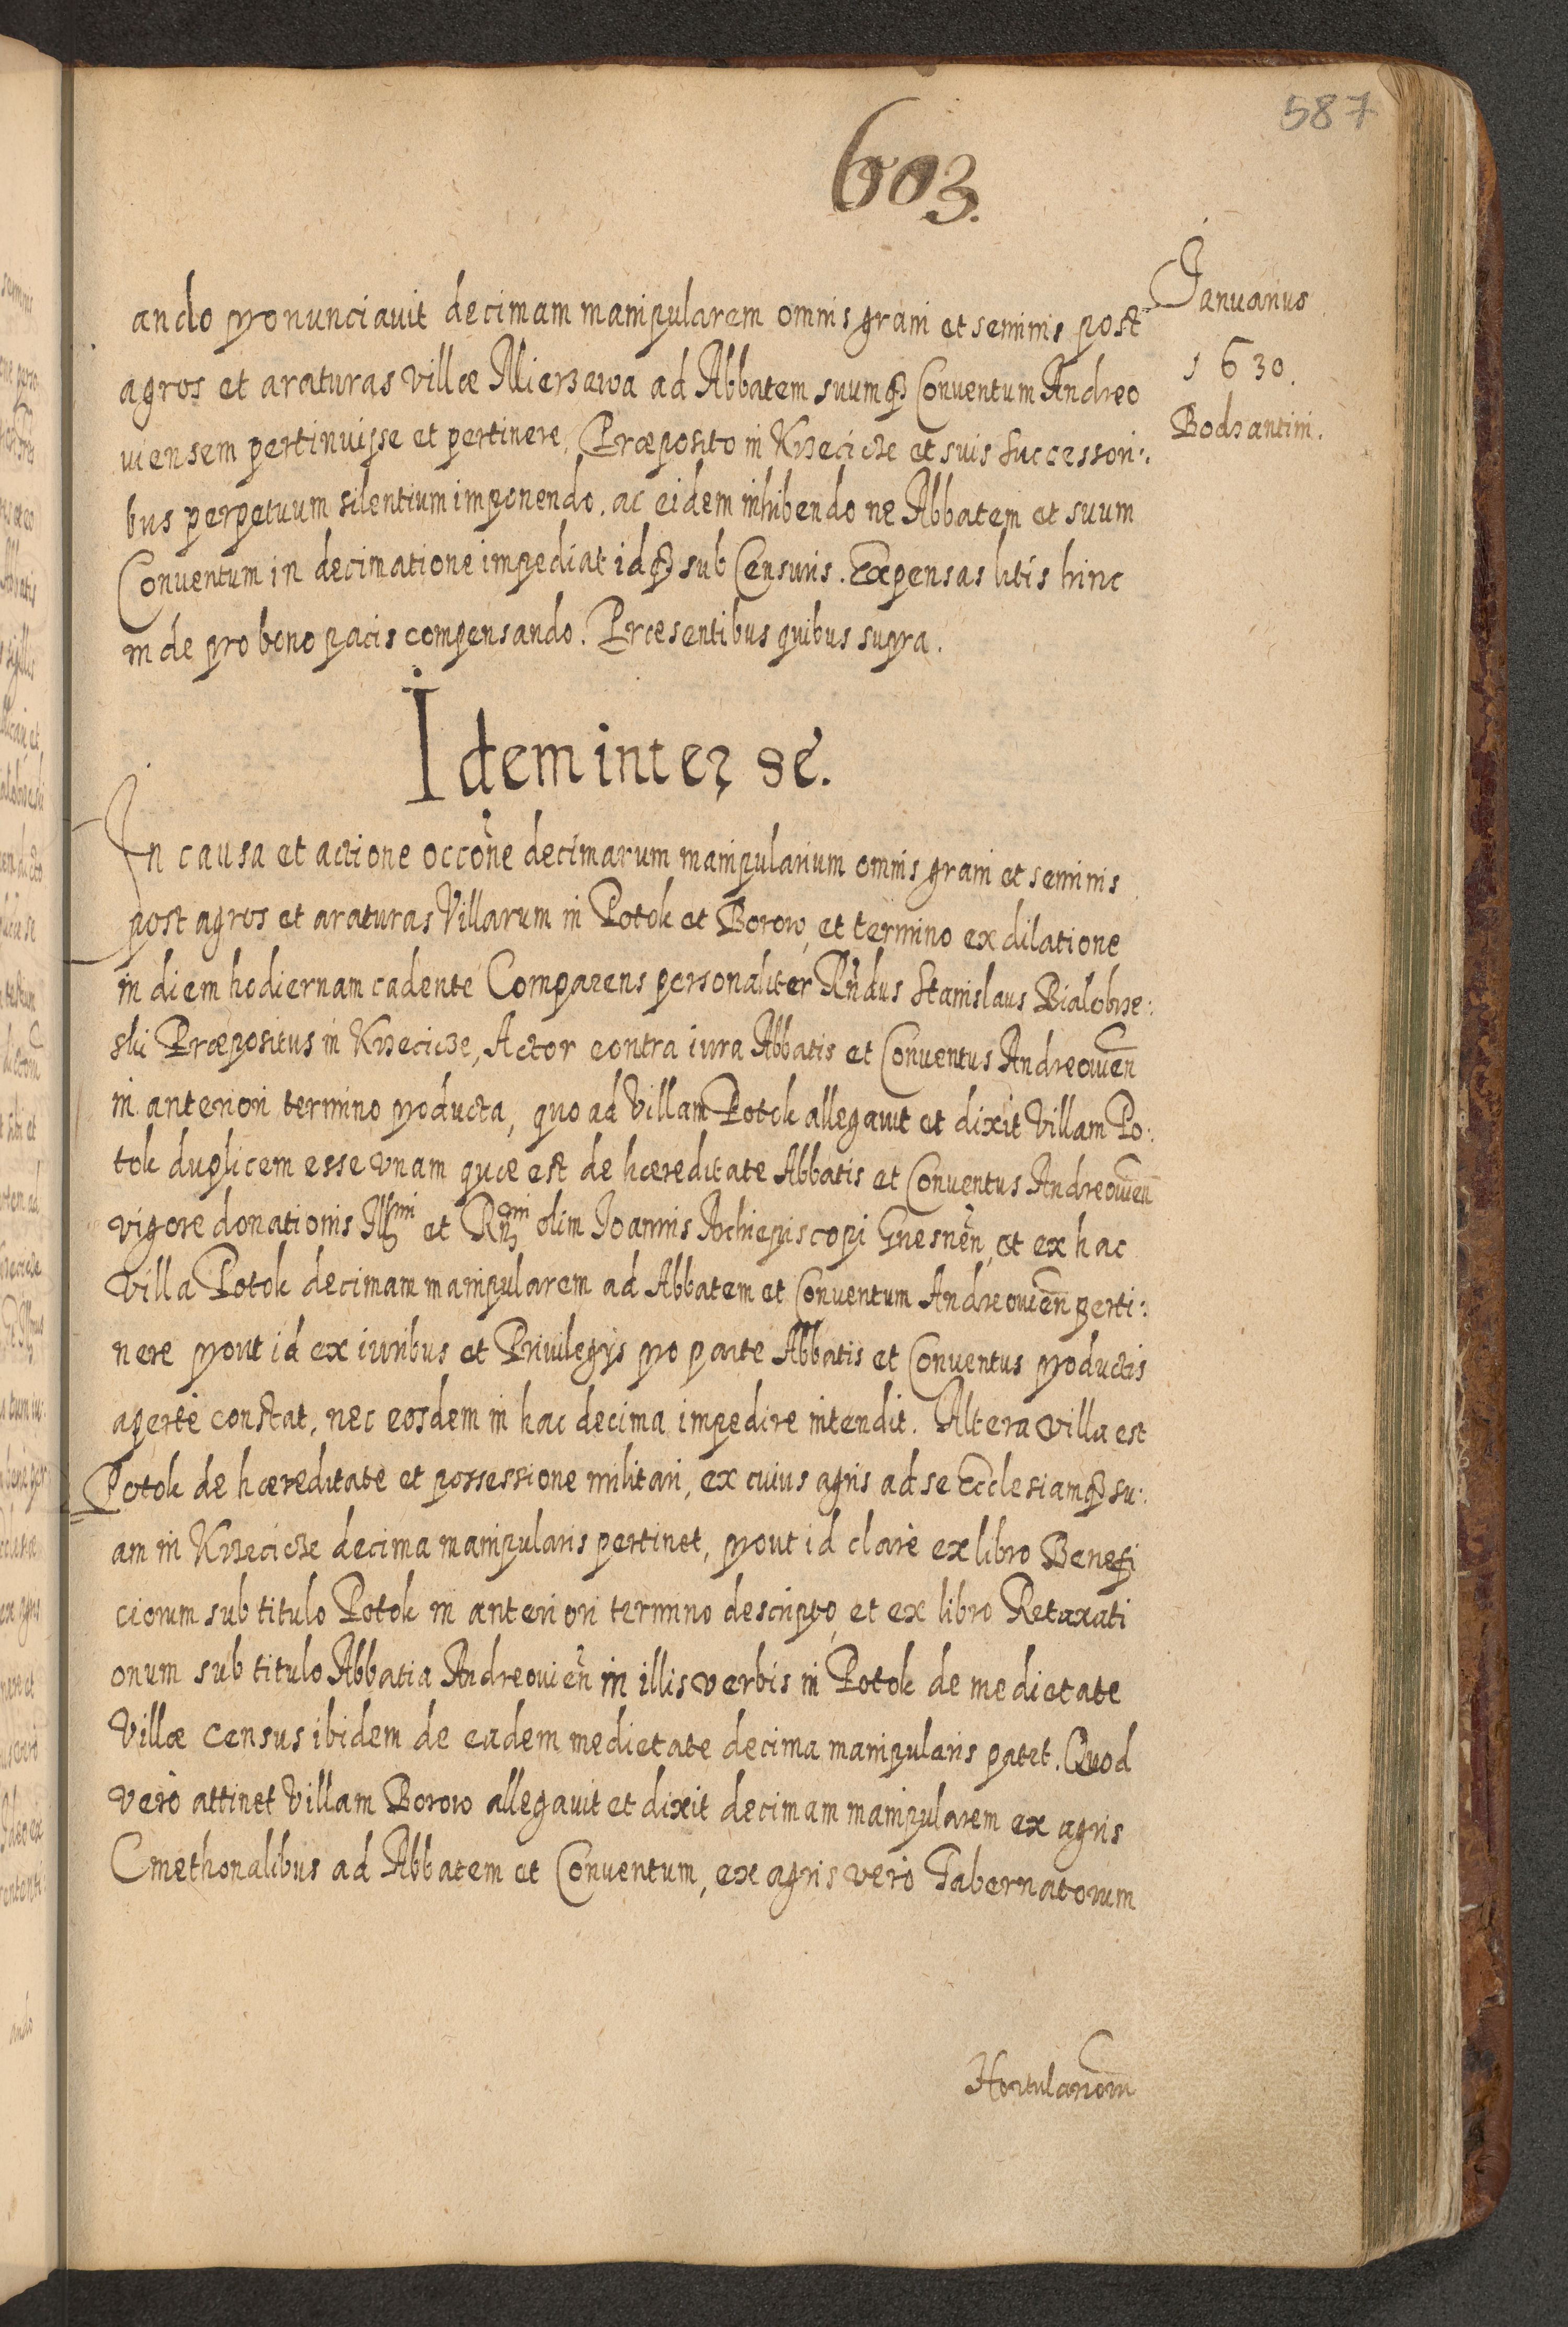 587
603.
Januarius
1630.
Bodzantini.
ando pronunciavit decimam manipularem omnis grani et seminis post
agros et araturas villæ Mierzawa ad Abbatem suumq3 Conventum Andreo
viensem pertinuisse et pertinere, Præposito in Krzecicze et suis Successori:
bus perpetuum silentium imponendo, ac eidem inhibendo ne Abbatem et suum
Conventum in decimatione impediat idq3 sub Censuris. Expensas litis hinc
inde pro bono pacis compensando. Præsentibus quibus supra.
Idem inter se.
In causa et actione occõne decimarum manipularium omnis grani et seminis
post agros et araturas Villarum in Potok et Borow, et termino ex dilatione
in diem hodiernam cadente Comparens personaliter Rñdus Stanislaus Bialobrze:
ski Præpositus in Krzecicze, Actor contra iura Abbatis et Conventus Andreowieñ
in anteriori termino producta, quo ad Villam Potok allegavit et dixit Villam Po:
tok duplicem esse vnam quæ est de hæreditate Abbatis et Conventus Andreowieñ
vigore donationis Illmi et Rñmi olim Joannis Archiepiscopi Gnesneñ, et ex hac
Villa Potok decimam manipularem ad Abbatem et Conventum Andreowieñ perti:
nere prout id ex iuribus et Privilegijs pro parte Abbatis et Conventus productis
apertè constat, nec eosdem in hac decima impedire intendit. Altera villa est
Potok de hæreditate et possessione militari, ex cuius agris ad se Ecclesiamq3 su:
am in Krzecicze decima manipularis pertinet, prout id clarè ex libro Benefi
ciorum sub titulo Potok in anteriori termino descripto, et ex libro Retaxati
onum sub titulo Abbatia Andreovieñ in illis verbis in Potok de medietate
Villæ census ibidem de eadem medietate decima manipularis patet. Quod
verò attinet Villam Borow allegavit et dixit decimam manipularem ex agris
Cmethonalibus ad Abbatem et Conventum, ex agris verò Tabernatorum
Hortulanorum